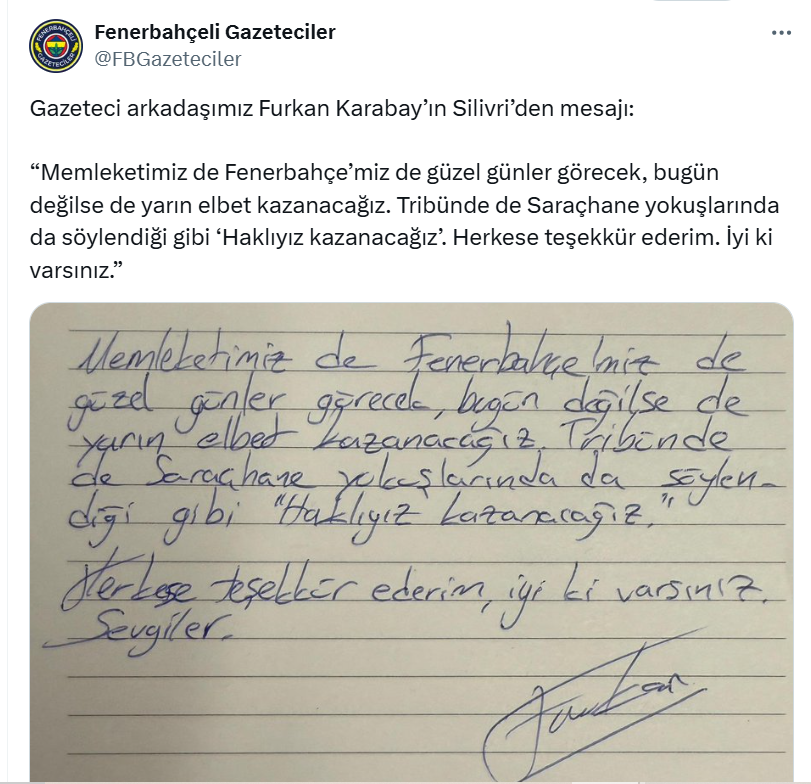 Fenerbahçeli Gazeteciler
@FBGazeteciler
Gazeteci arkadaşımız Furkan Karabay’ın Silivri’den mesajı:
“Memleketimiz de Fenerbahçe’miz de güzel günler görecek, bugün
değilse de yarın elbet kazanacağız. Tribünde de Saraçhane yokuşlarında
da söylendiği gibi ‘Haklıyız kazanacağız’. Herkese teşekkür ederim. İyi ki
varsınız.”
Memleketimiz de Fenerbahçe'miz de
güzel günler görecek, bugün değilse de
yarın elbet kazanacağız. Tribünde
de Saraçhane yokuşlarında da söylen-
diği gibi "Haklıyız kazanacağız."
Herkese teşekkür ederim, iyi ki varsınız.
Sevgiler.
Furkan